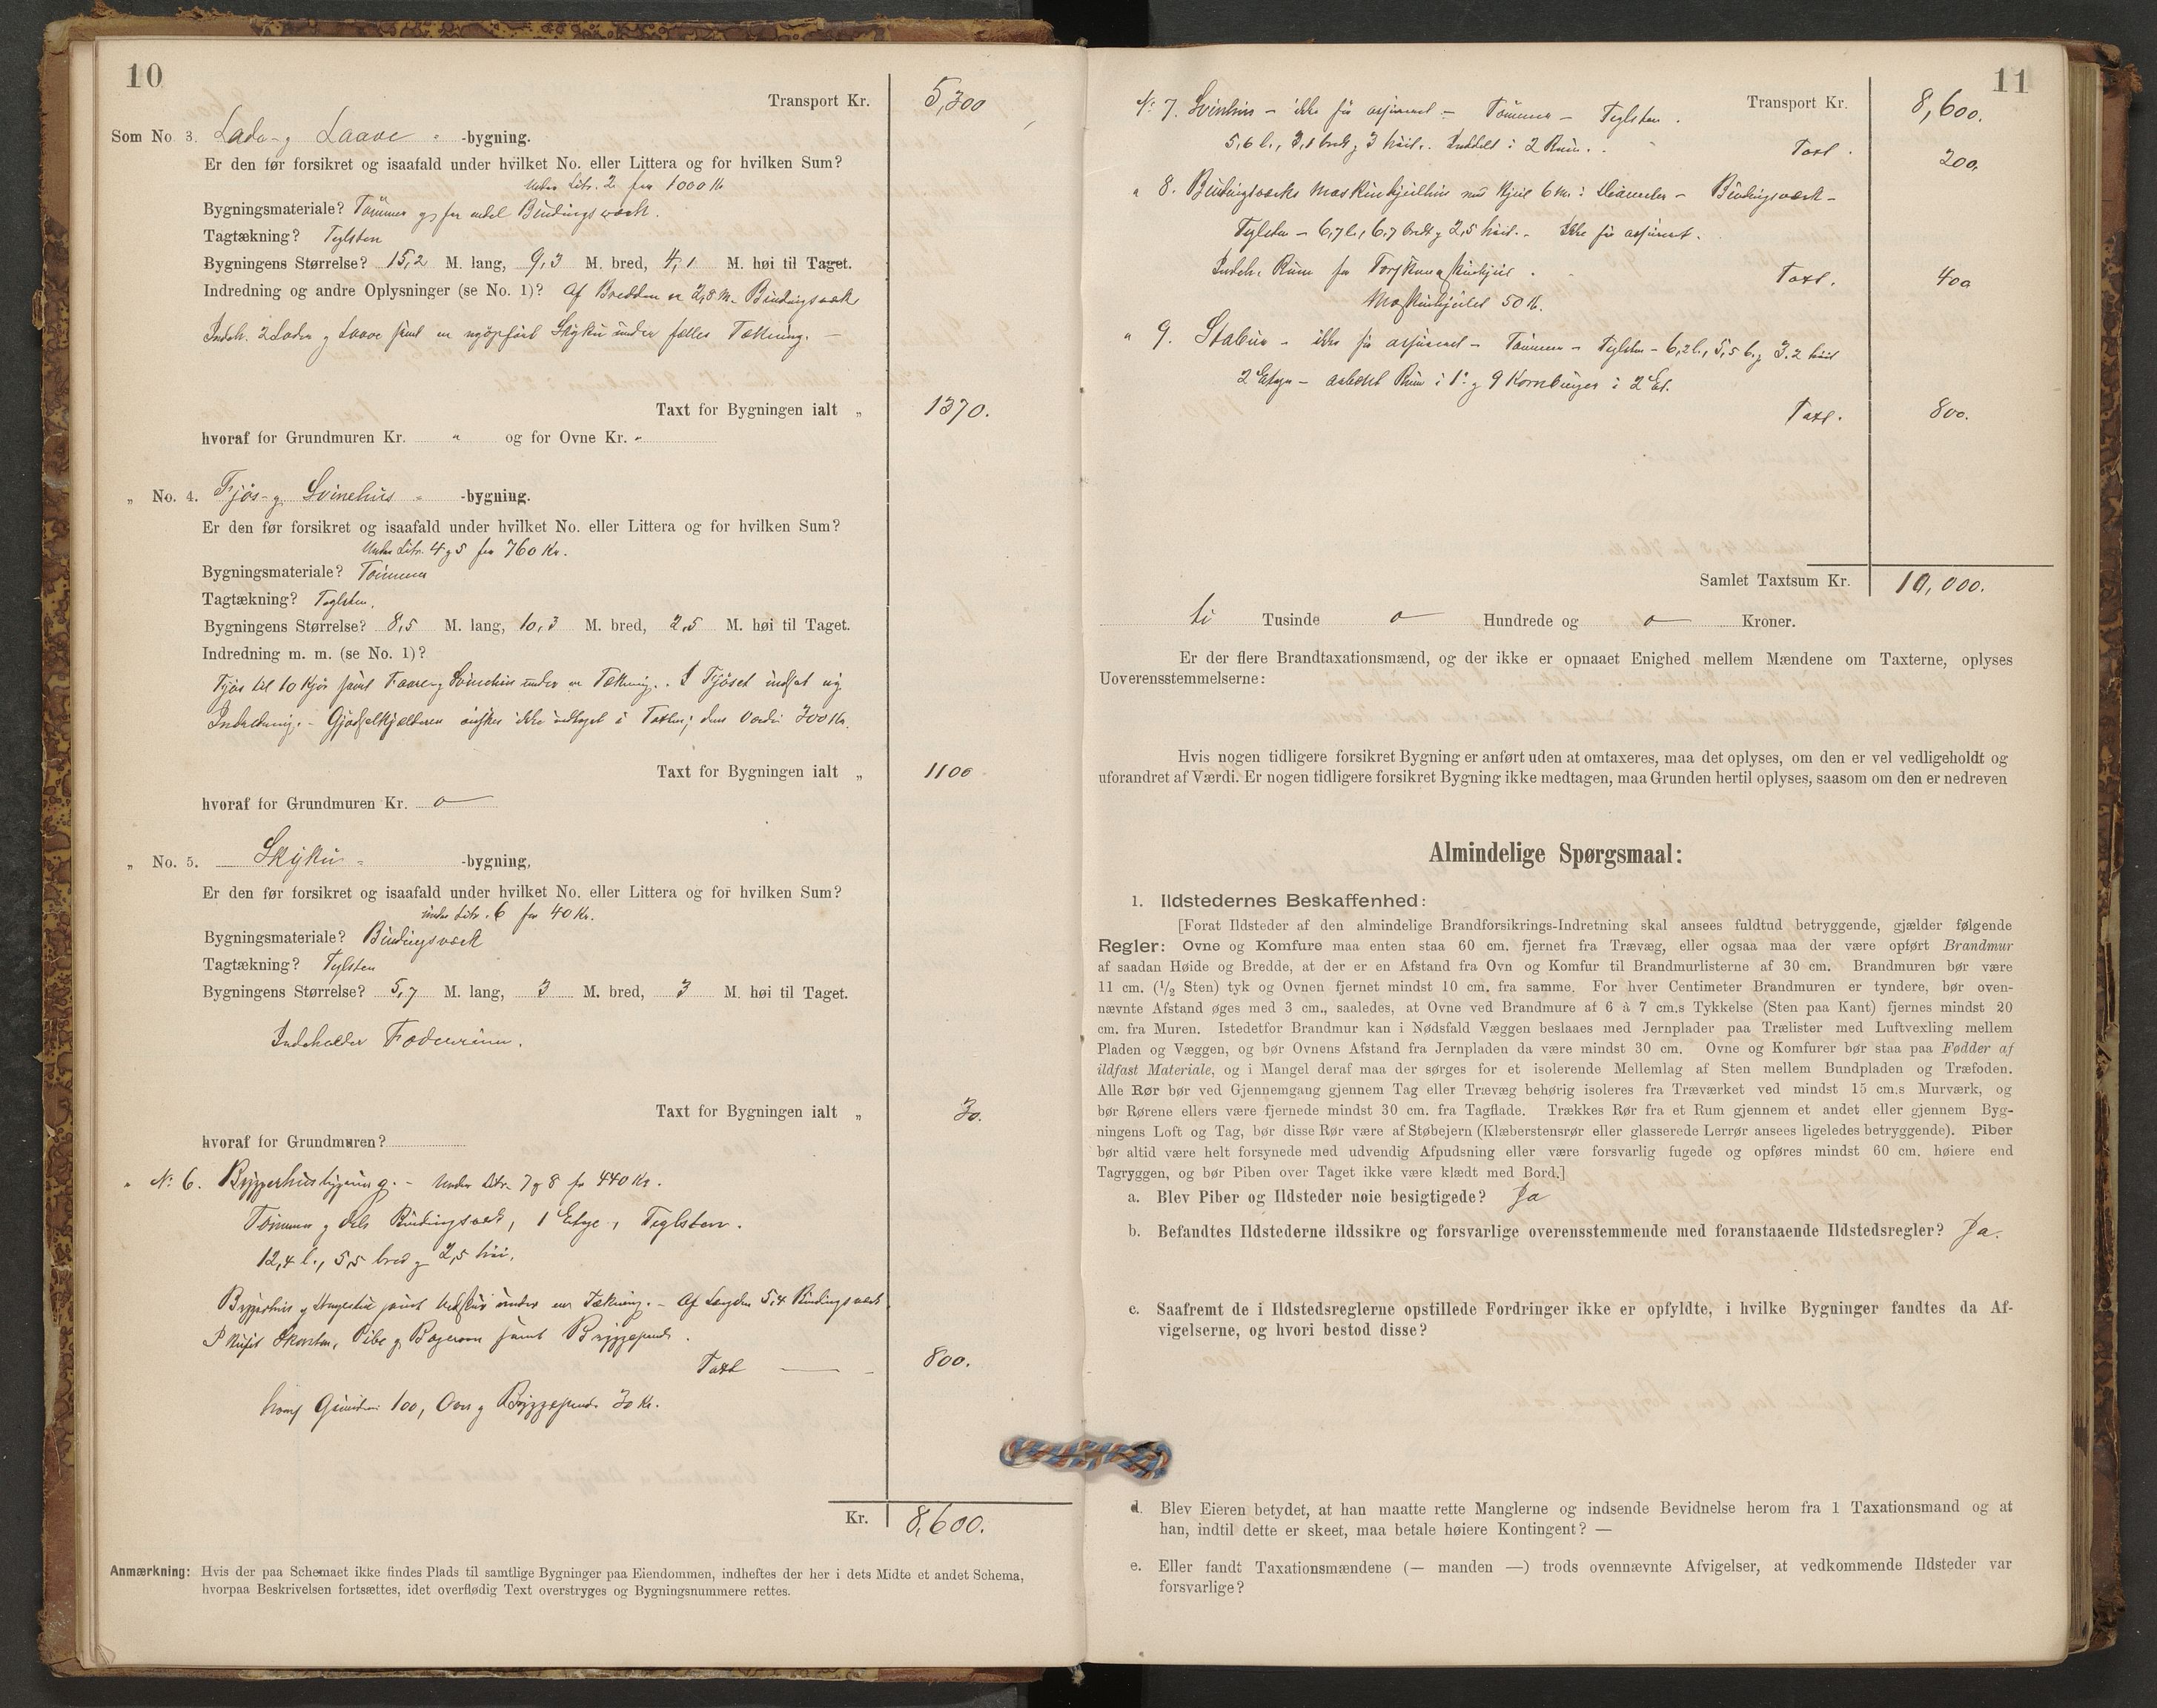 10
Transport Kr. 5,300
Som No. 3. Lade- og Laave - -bygning.
Er den før forsikret og isaafald under hvilket No. eller Littera og for hvilken Sum?
Under Litr. 2 for 1000 Kr
Bygningsmateriale? Tømmer og for endel Bindingsværk.
Tagtækning? Teglsten
Bygningens Størrelse? 15,2 M. lang, 9,3 M. bred, 4,1 M. høi til Taget.
Indredning og andre Oplysninger (se No. 1)? Af Bredden er 2,8 M. Bindingsværk
Indeh. 2 Lader og Laave samt en nyopført Skyku under fælles Tækning. —
Taxt for Bygningen ialt „ 1370.
hvoraf for Grundmuren Kr. " og for Ovne Kr. "
„ No. 4. Fjøs- og Svinehus - -bygning.
Er den før forsikret og isaafald under hvilket No. eller Littera og for hvilken Sum?
Under Litr. 4 og 5 for 760 Kr.
Bygningsmateriale? Tømmer
Tagtækning? Teglsten.
Bygningens Størrelse? 8,5 M. lang, 10,3 M. bred, 2,5 M. høi til Taget.
Indredning m. m. (se No. 1)?
Fjøs til 10 Kjør samt Faare- og Svinehus under en Tækning. I Fjøset indsat ny
Indredning. - Gjødselkjælderen ønskes ikke indtaget i Taxten; dens Værdi 300 Kr.
Taxt for Bygningen ialt „ 1100
hvoraf for Grundmuren Kr. o
„ No. 5. Skyku - -bygning.
Er den før forsikret og isaafald under hvilket No. eller Littera og for hvilken Sum?
under Litr. 6 for 40 Kr.
Bygningsmateriale? Bindingsværk
Tagtækning? Teglsten
Bygningens Størrelse? 5,7 M. lang, 3 M. bred, 3 M. høi til Taget.
Indeholder Foderrum.
Taxt for Bygningen ialt „ 30.
hvoraf for Grundmuren?
" No. 6. Bryggerhusbygning. - Under Litr. 7 og 8 for 440 Kr.
Tømmer og dels Bindingsværk, 1 Etage, Teglsten.
12,4 l., 5,5 bred og 2,5 høi.
Bryggerhus og samt Vedskur under en Tækning. - Af Længden 5,4 Bindingsværk
Skorsten, Pibe og Bagerovn samt Bryggepande.
Taxt — 800.
hvoraf Grunden 100, Ovn og Bryggepande 30 Kr.
Kr. 8,600.
Anmærkning: Hvis der paa Schemaet ikke findes Plads til samtlige Bygninger paa Eiendommen, indheftes der her i dets Midte et andet Schema,
hvorpaa Beskrivelsen fortsættes, idet overflødig Text overstryges og Bygningsnummere rettes.
11
Transport Kr. 8,600.
No. 7. Svinehus - ikke før assureret - Tømmer - Teglsten.
5,6 l., 3,1 bredt og 3 høit. Inddelt i 2 Rum. Taxt. 200.
" 8. Bindingsværks Maskinhjulhus med Hjul 6 M. i Diameter - Bindingsværk -
Teglsten - 6,7 l., 6,7 bredt og 2,5 høit. - Ikke før assureret.
Indeh. Rum for Maskinhjul. Taxt. 400
Maskinhjulet 50 Kr.
" 9. Stabur - ikke før assureret - Tømmer - Teglsten - 6,2 l., 5,5 b. og 3.2 høit
2 Etager - Rum i 1. og 9 Kornbinger i 2 Et.
Taxt. 800.
Samlet Taxtsum Kr. 10,000.
ti Tusinde o Hundrede og o Kroner.
Er der flere Brandtaxationsmænd, og der ikke er opnaaet Enighed mellem Mændene om Taxterne, oplyses
Uoverensstemmelserne:
Hvis nogen tidligere forsikret Bygning er anført uden at omtaxeres, maa det oplyses, om den er vel vedligeholdt og
uforandret af Værdi. Er nogen tidligere forsikret Bygning ikke medtagen, maa Grunden hertil oplyses, saasom om den er nedreven
Almindelige Spørgsmaal:
1. Ildstedernes Beskaffenhed:
[Forat Ildsteder af den almindelige Brandforsikrings-Indretning skal ansees fuldtud betryggende, gjælder følgende
Regler: Ovne og Komfure maa enten staa 60 cm. fjernet fra Trævæg, eller ogsaa maa der være opført Brandmur
af saadan Høide og Bredde, at der er en Afstand fra Ovn og Komfur til Brandmurlisterne af 30 cm. Brandmuren bør være
11 cm. (1/2 Sten) tyk og Ovnen fjernet mindst 10 cm. fra samme. For hver Centimeter Brandmuren er tyndere, bør oven-
nævnte Afstand øges med 3 cm., saaledes, at Ovne ved Brandmure af 6 à 7 cm.s Tykkelse (Sten paa Kant) fjernes mindst 20
cm. fra Muren. Istedetfor Brandmur kan i Nødsfald Væggen beslaaes med Jernplader paa Trælister med Luftvexling mellem
Pladen og Væggen, og bør Ovnens Afstand fra Jernpladen da være mindst 30 cm. Ovne og Komfurer bør staa paa Fødder af
ildfast Materiale, og i Mangel deraf maa der sørges for et isolerende Mellemlag af Sten mellem Bundpladen og Træfoden.
Alle Rør bør ved Gjennemgang gjennem Tag eller Trævæg behørig isoleres fra Træværket ved mindst 15 cm.s Murværk, og
bør Rørene ellers være fjernede mindst 30 cm. fra Tagflade. Trækkes Rør fra et Rum gjennem et andet eller gjennem Byg-
ningens Loft og Tag, bør disse Rør være af Støbejern (Klæberstensrør eller glasserede Lerrør ansees ligeledes betryggende). Piber
bør altid være helt forsynede med udvendig Afpudsning eller være forsvarlig fugede og opføres mindst 60 cm. høiere end
Tagryggen, og bør Piben over Taget ikke være klædt med Bord.]
a. Blev Piber og Ildsteder nøie besigtigede? Ja
b. Befandtes Ildstederne ildssikre og forsvarlige overensstemmende med foranstaaende Ildstedsregler? Ja.
c. Saafremt de i Ildstedsreglerne opstillede Fordringer ikke er opfyldte, i hvilke Bygninger fandtes da Af-
vigelserne, og hvori bestod disse?
d. Blev Eieren betydet, at han maatte rette Manglerne og indsende Bevidnelse herom fra 1 Taxationsmand og at
han, indtil dette er skeet, maa betale høiere Kontingent? —
e. Eller fandt Taxationsmændene (— manden —) trods ovennævnte Afvigelser, at vedkommende Ildsteder var
forsvarlige?